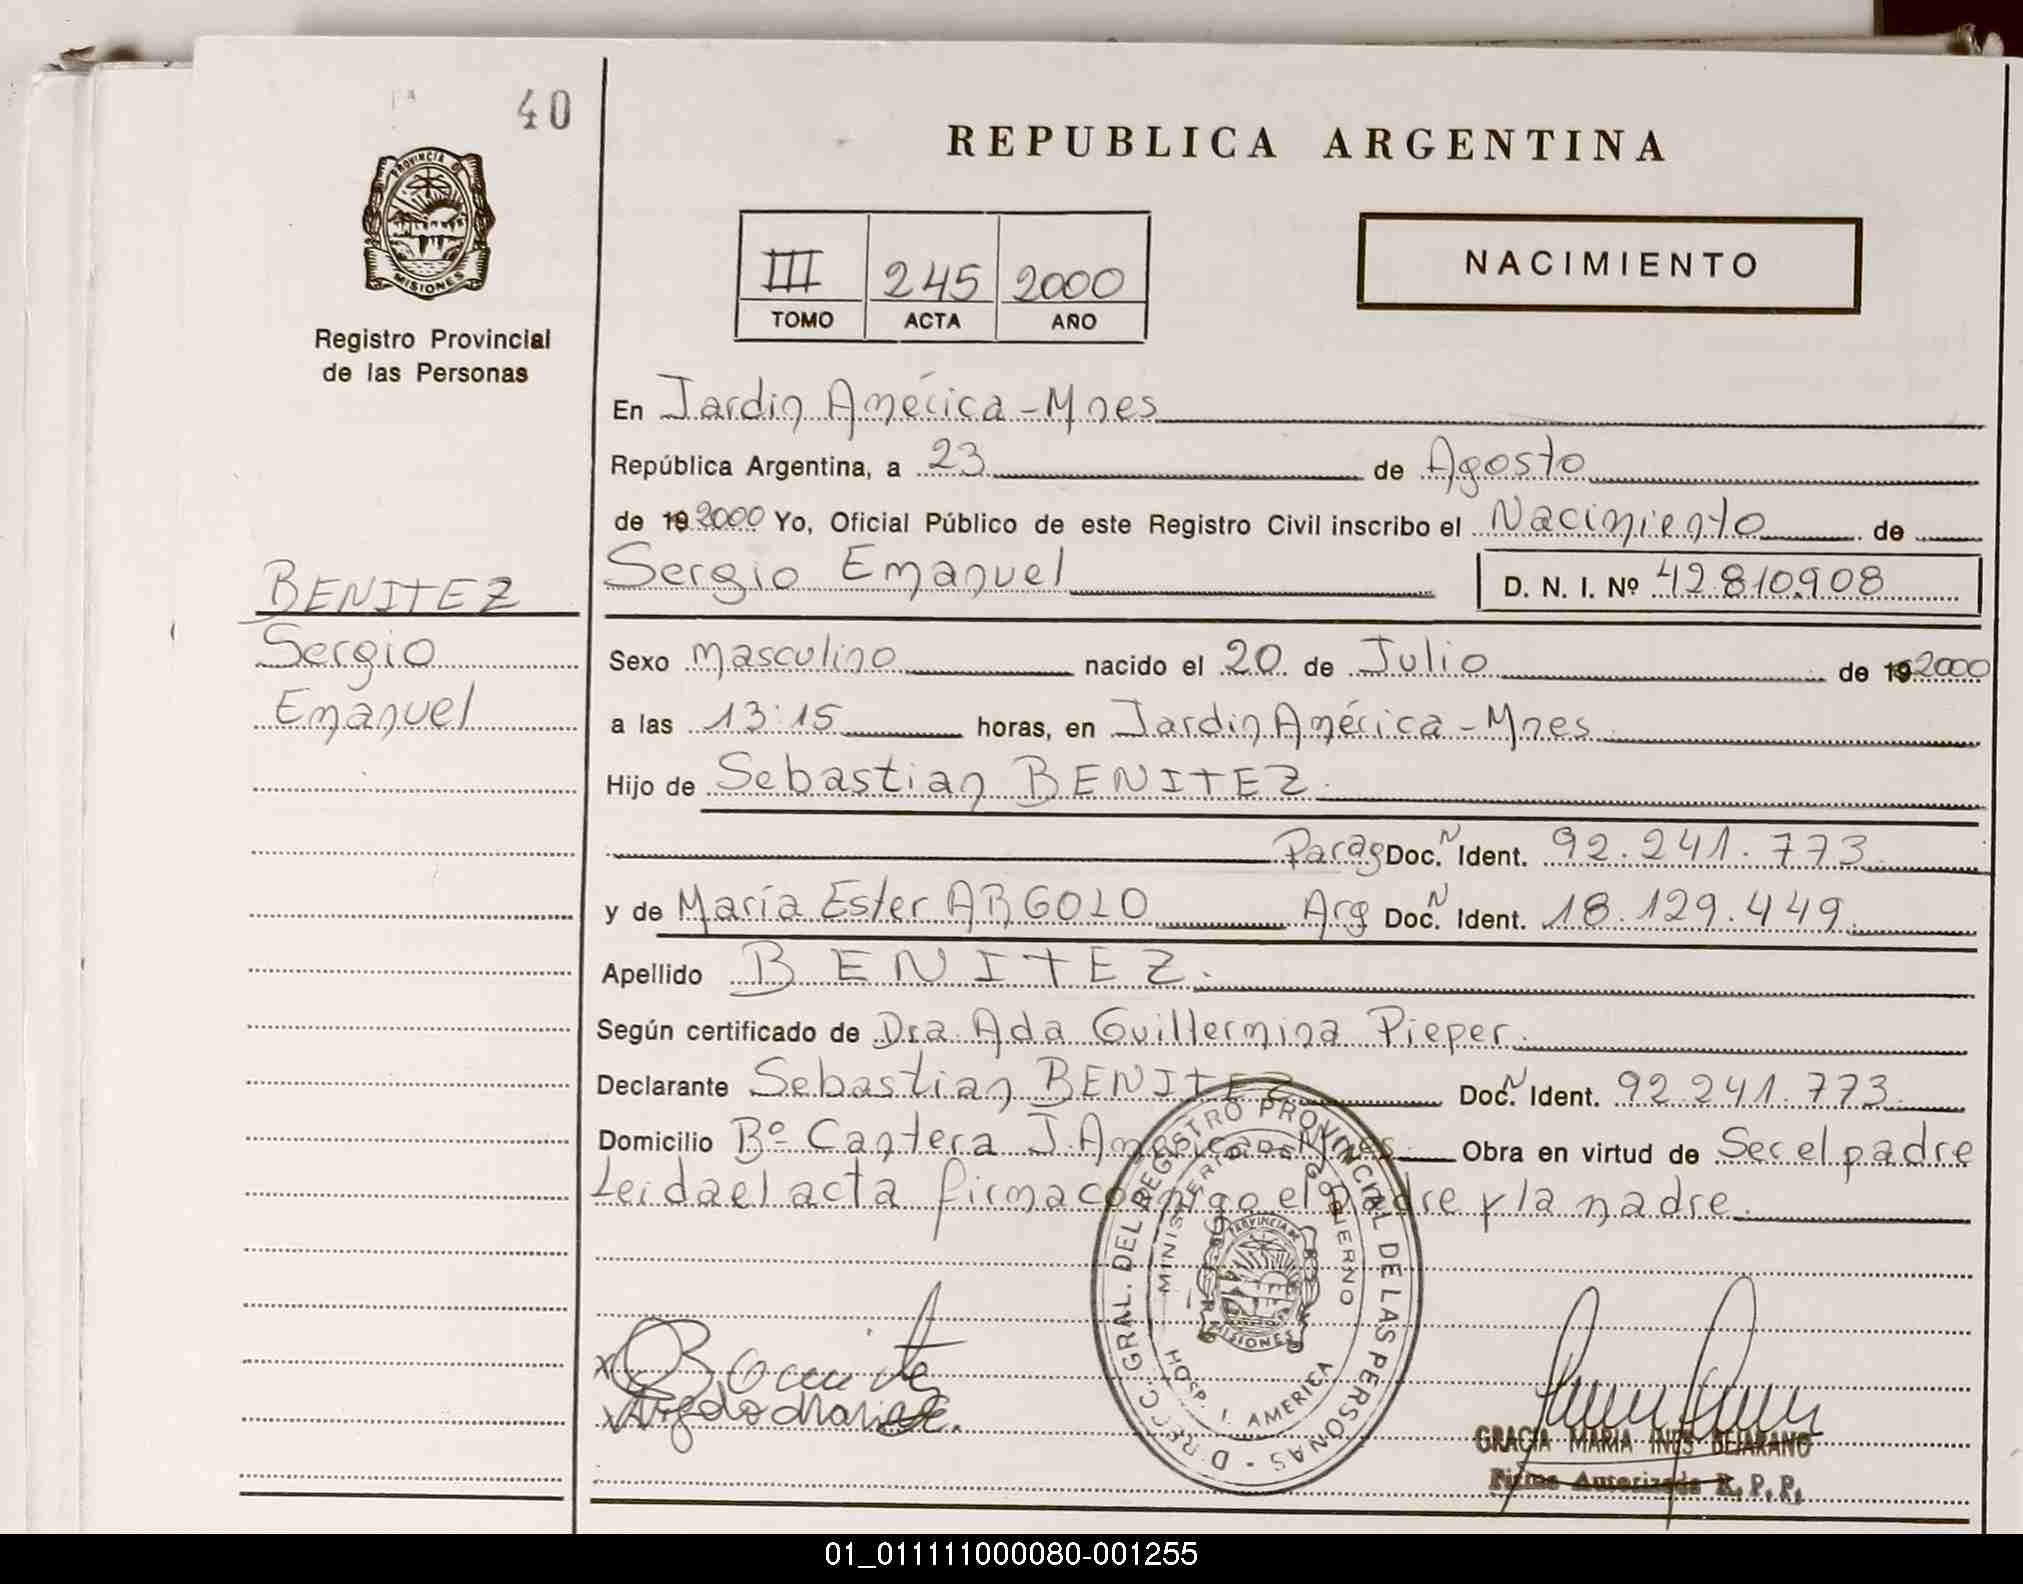 40
REPUBLICA ARGENTINA
PROVINCIA D
MISIONES
Registro Provincial
de las Personas
III 245 2000
TOMO ACTA AÑO
NACIMIENTO
En Jardin América - Mnes
República Argentina, a 23 de Agosto
de 19 2000 Yo, Oficial Público de este Registro Civil inscribo el Nacimiento de
BENITEZ
Sergio Emanuel D. N. I. Nº 42.810.908
Sergio
Sexo masculino nacido el 20 de Julio de 19 2000
Emanuel
a las 13:15 horas, en Jardin América - Mnes
Hijo de Sebastian BENITEZ.
Parag Doc. N Ident. 92.241.773
y de María Ester ARGOLO Arg Doc. N Ident. 18.129.449.
Apellido BENITEZ.
Según certificado de Dra. Ada Guillermina Pieper.
Declarante Sebastian BENITEZ Doc. N Ident. 92.241.773
Domicilio Bº Cantera J. America - Mnes Obra en virtud de Ser el padre
Leida el acta firma conmigo el padre y la madre.
DIRECC. GRAL. DEL REGISTRO PROVINCIAL DE LAS PERSONAS -
MINISTERIO DE GOBIERNO
PROVINCIA DE
MISIONES
HOSP. I. AMERICA
GRACIA MARIA INES BEJARANO
Firma Autorizada R. P. P.
01_011111000080-001255